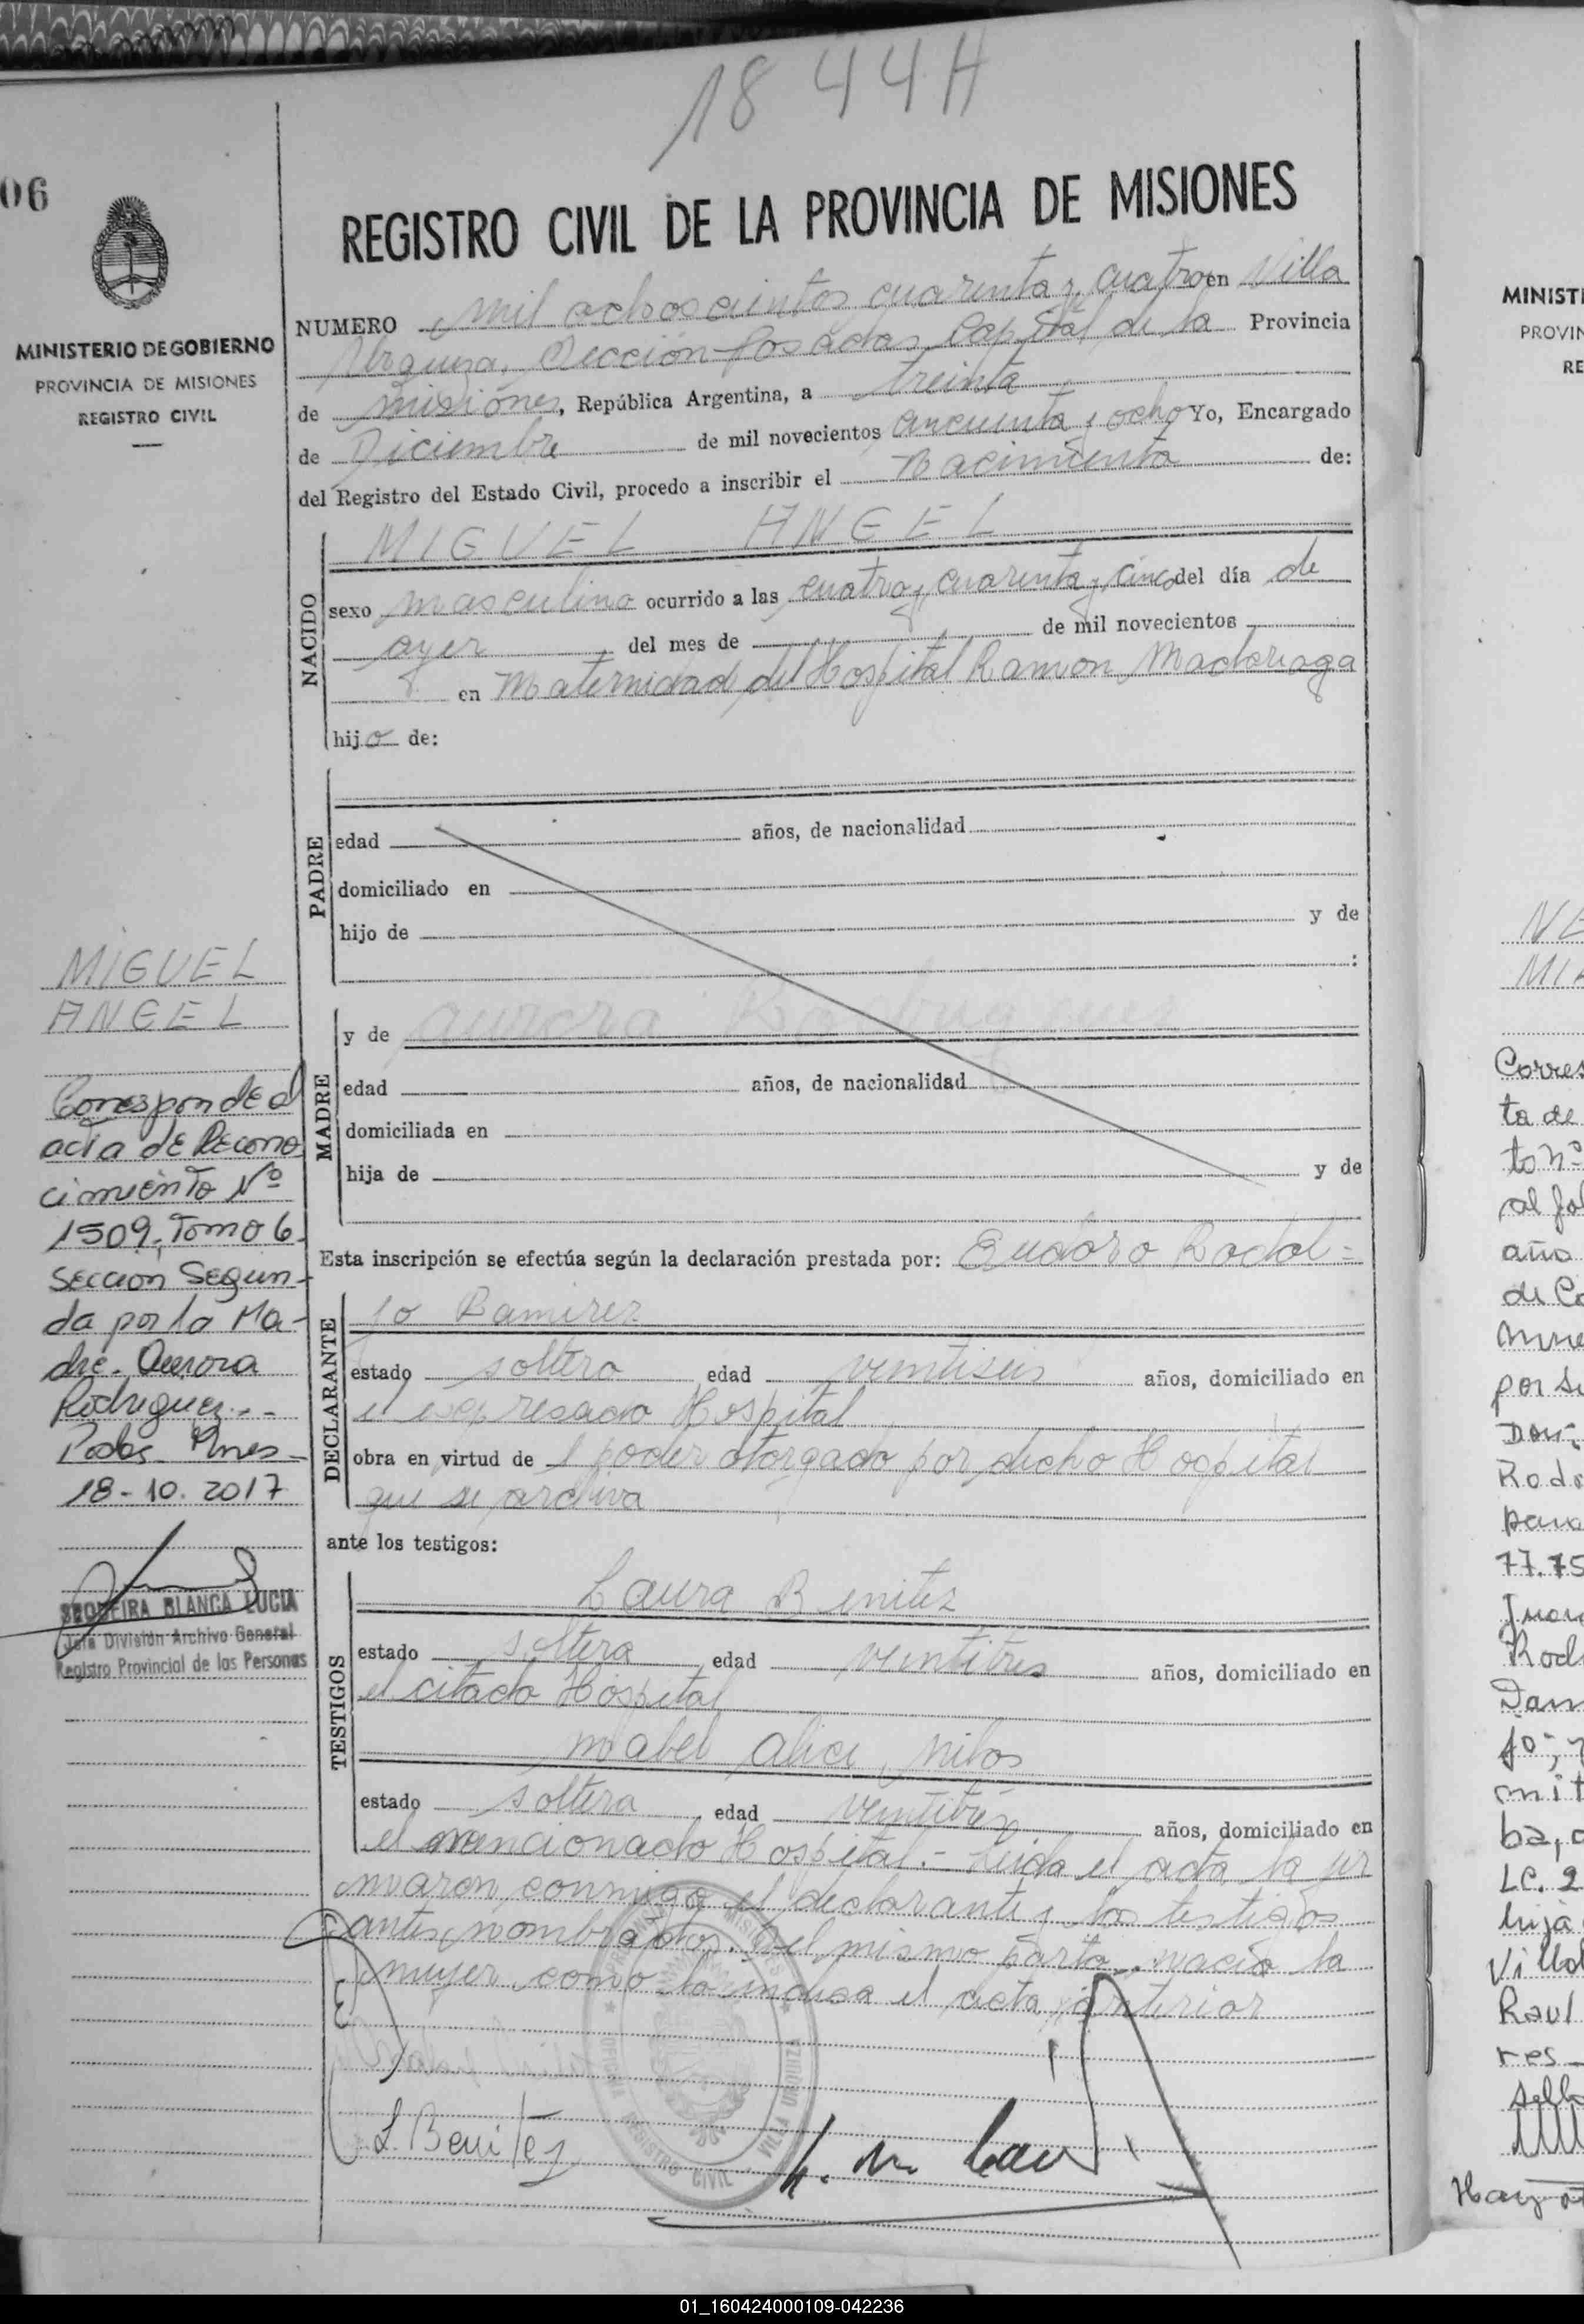 18 44 H
06
REGISTRO CIVIL DE LA PROVINCIA DE MISIONES
MINISTERIO DE GOBIERNO
PROVINCIA DE MISIONES
REGISTRO CIVIL
NUMERO mil ochoscientos cuarenta y cuatro en Villa
Urquiza, Sección Posadas Capital de la Provincia
de Misiones, República Argentina, a treinta
de Diciembre de mil novecientos cincuenta y ocho Yo, Encargado
del Registro del Estado Civil, procedo a inscribir el Nacimiento de:
MIGUEL ANGEL
NACIDO
sexo masculino ocurrido a las cuatro y cuarenta y cinco del día de
ayer del mes de de mil novecientos
en Maternidad del Hospital Ramon Madariaga
hijo de:
PADRE
edad años, de nacionalidad
domiciliado en
hijo de y de
:
MADRE
y de Aurora
edad años, de nacionalidad
domiciliada en
hija de y de
Esta inscripción se efectúa según la declaración prestada por: Eudoro Rodol=
DECLARANTE
fo Ramirez
estado soltero edad veintiseis años, domiciliado en
el expresado Hospital
obra en virtud de l poder otorgado por dicho Hospital
que se archiva
ante los testigos:
TESTIGOS
Laura Benitez
estado soltera edad veintitres años, domiciliado en
el citado Hospital
Mabel Alice
estado soltera edad veintitres años, domiciliado en
el mencionado Hospital.- Leida el acta la fir
maron conmigo el declarante y los testigos
antes nombrados. Del mismo parto nacio la
mujer como lo indica el acta anterior
L. Benitez
REGISTRO CIVIL VILLA URQUIZA
MIGUEL
ANGEL
Corresponde al
acta de Recono
cimiento Nº
1509. Tomo 6
Seccion Segun-
da por la Ma-
dre. Aurora
Rodriguez.-
Podas. Mnes-
18-10. 2017
SEQUEIRA BLANCA LUCIA
Jefa División Archivo General
Registro Provincial de las Personas
MINIST
PROVIN
RE
NE
MI
Corres
ta de
to nº
al fol
año
de Co
por su
Rod
77.75
Rod
mit
LC. 2
hija
Villa
Raul
res
sello
Hay
01_160424000109-042236